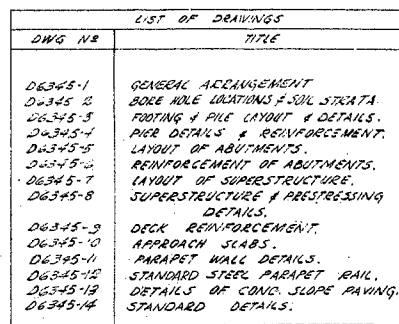 LIST OF DRAWINGS
DWG Nº TITLE
D6345-1 GENERAL ARRANGEMENT
D6345-2 BORE HOLE LOCATIONS & SOIL STRATA
D6345-3 FOOTING & PILE LAYOUT & DETAILS.
D6345-4 PIER DETAILS & REINFORCEMENT.
D6345-5 LAYOUT OF ABUTMENTS.
D6345-6 REINFORCEMENT OF ABUTMENTS.
D6345-7 LAYOUT OF SUPERSTRUCTURE.
D6345-8 SUPERSTRUCTURE & PRESTRESSING
DETAILS.
D6345-9 DECK REINFORCEMENT.
D6345-10 APPROACH SLABS.
D6345-11 PARAPET WALL DETAILS.
D6345-12 STANDARD STEEL PARAPET RAIL.
D6345-13 DETAILS OF CONC. SLOPE PAVING.
D6345-14 STANDARD DETAILS.